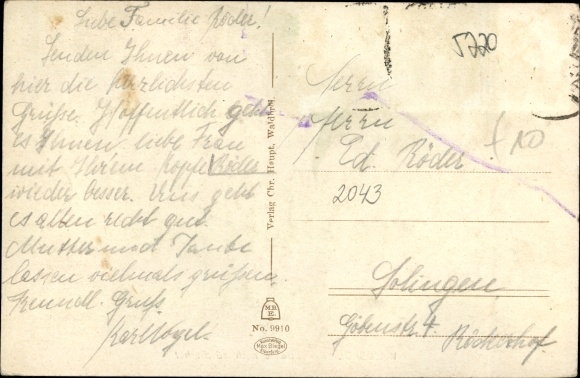 Liebe Familie Röder!
Senden Ihnen von
hier die herzlichsten
Grüße. Hoffentlich geht
es Ihnen liebe Frau
mit Ihrem Kopfe Röder
wieder besser. Uns geht
es allen recht gut.
Mutter und Tante
lassen vielmals grüßen.
Freundl. Gruß
Karl Vogel.
Verlag Chr. Haupt, Waldbröl
M.B.
E.
No. 9910
5220
Herrn
Herrn
Ed. Röder
f 10
2043
Solingen
Göbenstr. 4
Röckerhof